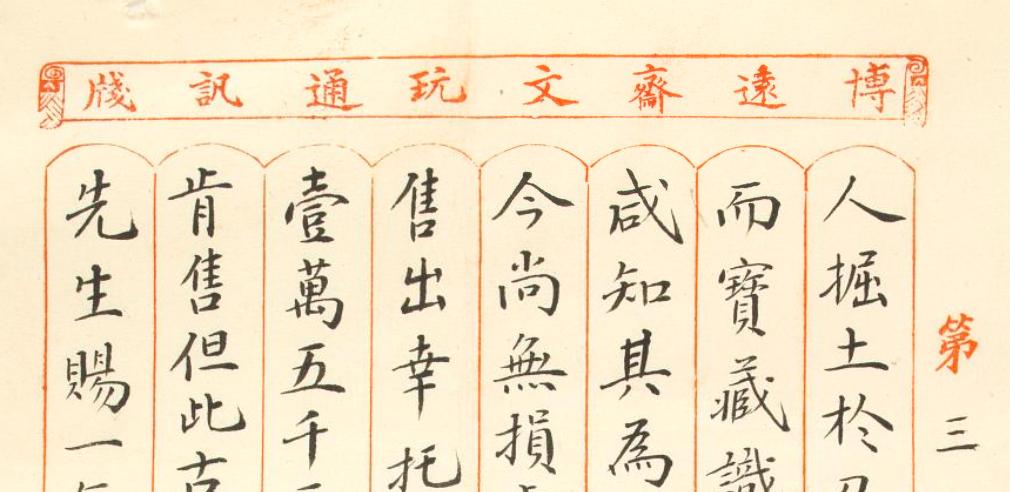 博遠齋文玩通訊牋
第三
人掘土於
而寶藏識
咸知其為
今尚無損
售出幸托
壹萬五千
肯售但此古
先生賜一